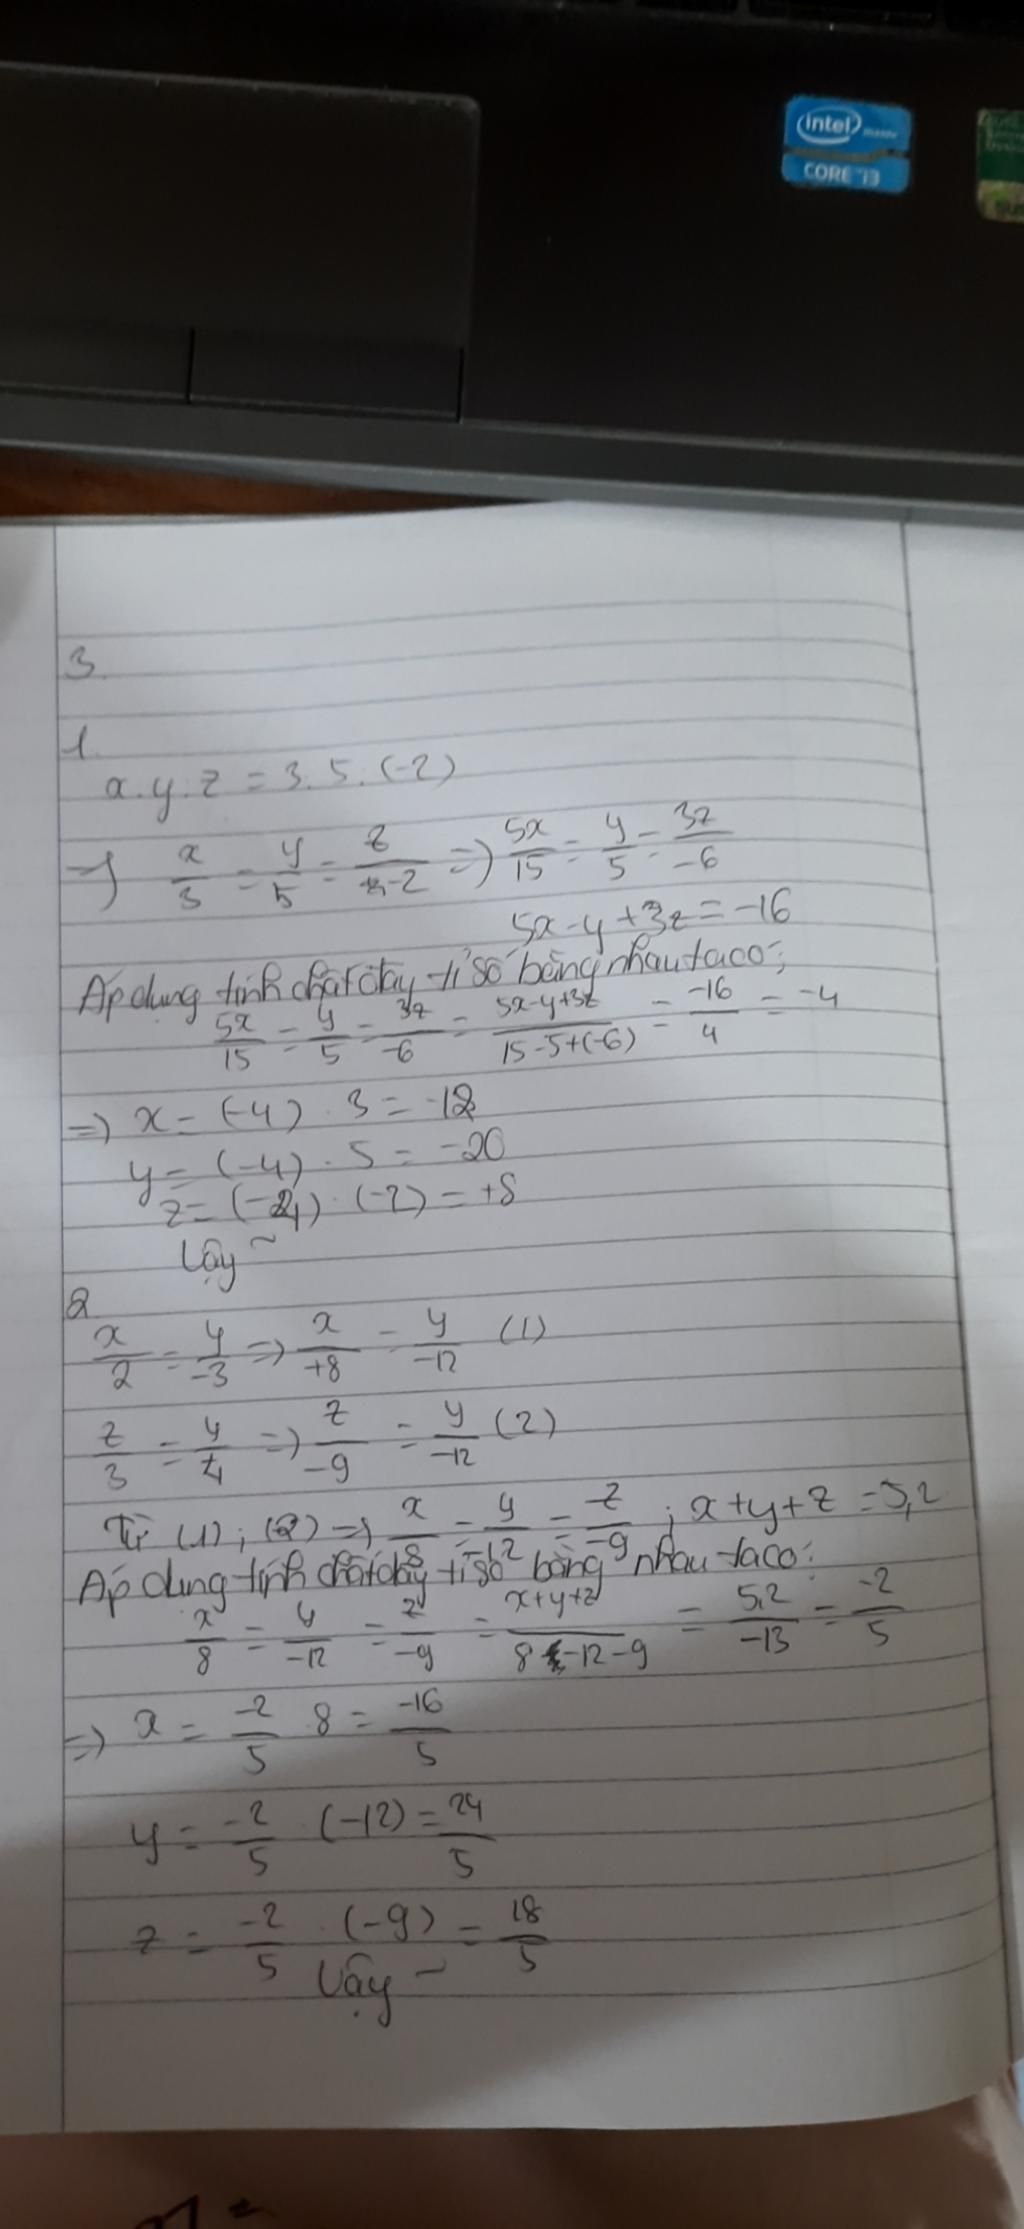 intel
CORE i3
3.
1.
x.y.z = 3.5.(-2)
=> x/3 = y/5 = z/-2 => 5x/15 = y/5 = 3z/-6
5x-y+3z = -16
Áp dụng tính chất dãy tỉ số bằng nhau ta có:
5x/15 = y/5 = 3z/-6 = 5x-y+3z/15-5+(-6) = -16/4 = -4
=> x = (-4) . 3 = -12
y = (-4) . 5 = -20
z = (-4) . (-2) = +8
Vậy ~
2.
x/2 = y/-3 => x/+8 = y/-12 (1)
z/3 = y/4 => z/-9 = y/-12 (2)
Từ (1); (2) => x/8 = y/-12 = z/-9 ; x+y+z = 5,2
Áp dụng tính chất dãy tỉ số bằng nhau ta có:
x/8 = y/-12 = z/-9 = x+y+z/8-12-9 = 5,2/-13 = -2/5
=> x = -2/5 . 8 = -16/5
y = -2/5 . (-12) = 24/5
z = -2/5 . (-9) = 18/5
Vậy ~